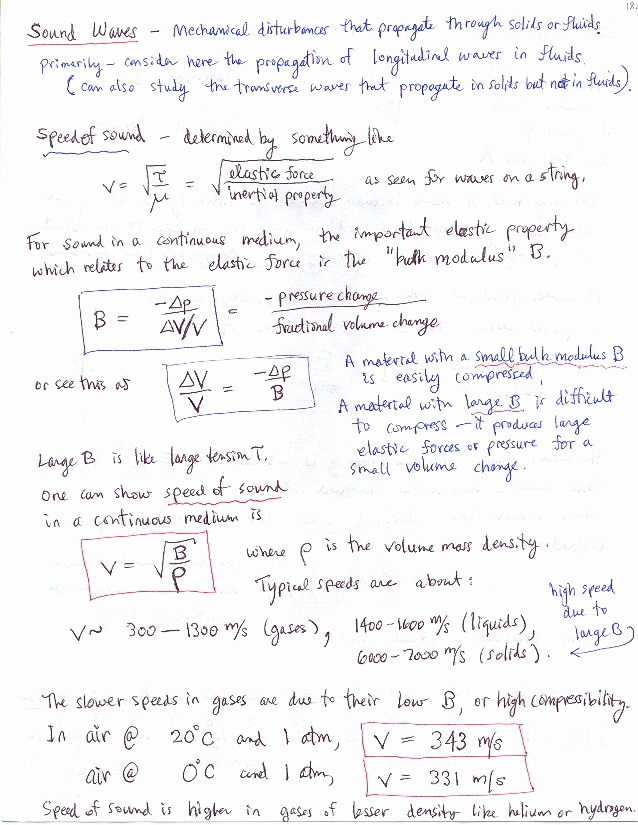 18.
Sound Waves – Mechanical disturbances that propagate through solids or fluids.
Primarily – consider here the propagation of longitudinal waves in fluids.
(can also study the transverse waves that propagate in solids but not in fluids).
Speed of sound – determined by something like
v = √(τ/μ) = √(elastic force / inertial property) as seen for waves on a string.
For sound in a continuous medium, the important elastic property
which relates to the elastic force is the "bulk modulus" B.
B = -Δp / (ΔV/V) = - pressure change / fractional volume change
or see this as ΔV/V = -Δp/B
A material with a small bulk modulus B
is easily compressed,
A material with large B is difficult
to compress – it produces large
elastic forces or pressure for a
small volume change.
Large B is like large tension τ.
One can show speed of sound
in a continuous medium is
v = √(B/ρ) where ρ is the volume mass density.
Typical speeds are about:
v ~ 300 – 1300 m/s (gases), 1400 – 1600 m/s (liquids),
6000 – 7000 m/s (solids).
high speed
due to
large B
The slower speeds in gases are due to their low B, or high compressibility.
In air @ 20°C and 1 atm, v = 343 m/s
air @ 0°C and 1 atm, v = 331 m/s
Speed of sound is higher in gases of lesser density like helium or hydrogen.